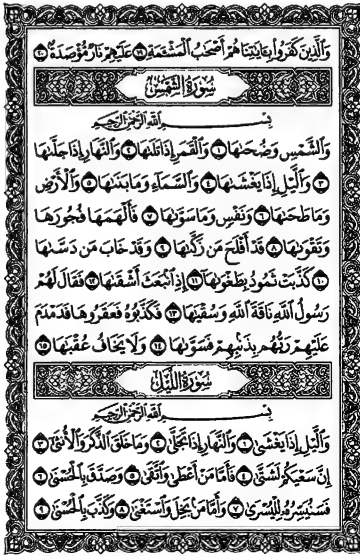 وَالَّذِينَ كَفَرُوا بِآيَاتِنَا هُمْ أَصْحَابُ الْمَشْئَمَةِ ١٩ عَلَيْهِمْ نَارٌ مُؤْصَدَةٌ ٢٠
سُورَةُ الشَّمْسِ
بِسْمِ اللَّهِ الرَّحْمَنِ الرَّحِيمِ
وَالشَّمْسِ وَضُحَاهَا ١ وَالْقَمَرِ إِذَا تَلَاهَا ٢ وَالنَّهَارِ إِذَا جَلَّاهَا
٣ وَاللَّيْلِ إِذَا يَغْشَاهَا ٤ وَالسَّمَاءِ وَمَا بَنَاهَا ٥ وَالْأَرْضِ
وَمَا طَحَاهَا ٦ وَنَفْسٍ وَمَا سَوَّاهَا ٧ فَأَلْهَمَهَا فُجُورَهَا
وَتَقْوَاهَا ٨ قَدْ أَفْلَحَ مَنْ زَكَّاهَا ٩ وَقَدْ خَابَ مَنْ دَسَّاهَا
١٠ كَذَّبَتْ ثَمُودُ بِطَغْوَاهَا ١١ إِذِ انْبَعَثَ أَشْقَاهَا ١٢ فَقَالَ لَهُمْ
رَسُولُ اللَّهِ نَاقَةَ اللَّهِ وَسُقْيَاهَا ١٣ فَكَذَّبُوهُ فَعَقَرُوهَا فَدَمْدَمَ
عَلَيْهِمْ رَبُّهُمْ بِذَنْبِهِمْ فَسَوَّاهَا ١٤ وَلَا يَخَافُ عُقْبَاهَا ١٥
سُورَةُ اللَّيْلِ
بِسْمِ اللَّهِ الرَّحْمَنِ الرَّحِيمِ
وَاللَّيْلِ إِذَا يَغْشَى ١ وَالنَّهَارِ إِذَا تَجَلَّى ٢ وَمَا خَلَقَ الذَّكَرَ وَالْأُنْثَى ٣
إِنَّ سَعْيَكُمْ لَشَتَّى ٤ فَأَمَّا مَنْ أَعْطَى وَاتَّقَى ٥ وَصَدَّقَ بِالْحُسْنَى ٦
فَسَنُيَسِّرُهُ لِلْيُسْرَى ٧ وَأَمَّا مَنْ بَخِلَ وَاسْتَغْنَى ٨ وَكَذَّبَ بِالْحُسْنَى ٩